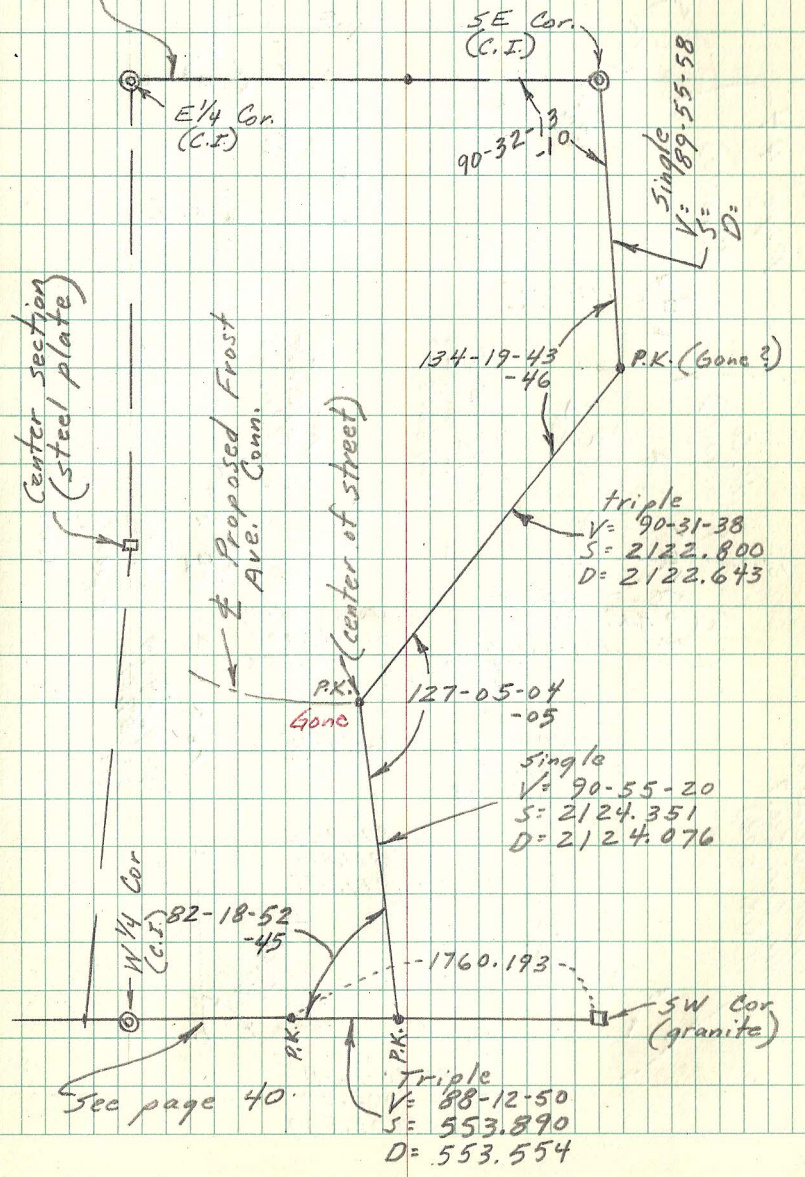 SE Cor.
(C.I.)
E 1/4 Cor.
(C.I.)
90-32-13
-10
Single
V= 89-55-58
S=
D=
Center section
(steel plate)
℄ Proposed Frost
Ave. Conn.
(center of street)
134-19-43
-46
P.K. (Gone?)
triple
V= 90-31-38
S= 2122.800
D= 2122.643
P.K.
Gone
127-05-04
-05
Single
V= 90-55-20
S= 2124.351
D= 2124.076
W 1/4 Cor
(C.I.)
82-18-52
-45
1760.193
SW Cor
(granite)
P.K.
P.K.
See page 40.
Triple
V= 88-12-50
S= 553.890
D= 553.554